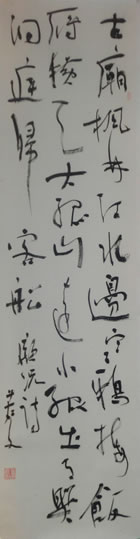 古廟楓林江水邊寒鴉接飯
雁橫天大孤山遠小孤出月照
洞庭歸客船 顧況詩